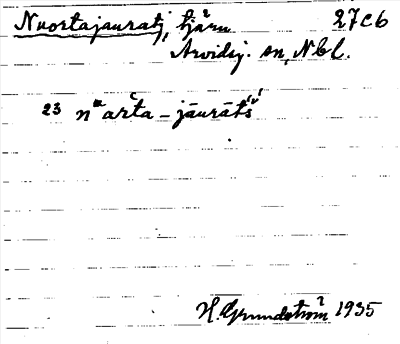 Nuortajauratj, tjärn 27C6
Arvidsj. sn, Nbl.
23 nᵘarta - jāurātś
H. Grundström 1935